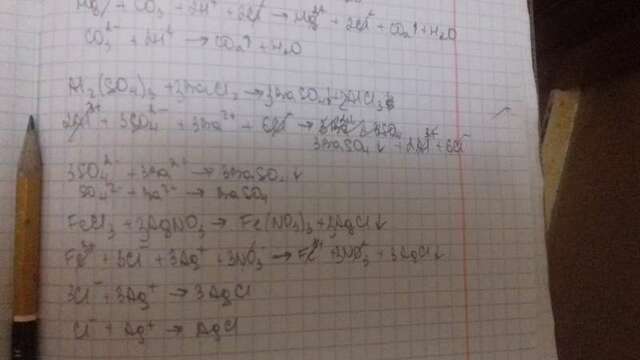 Mg²⁺ + CO₃²⁻ + 2H⁺ + 2Cl⁻ → Mg²⁺ + 2Cl⁻ + CO₂↑ + H₂O
CO₃²⁻ + 2H⁺ → CO₂↑ + H₂O
Al₂(SO₄)₃ + 3BaCl₂ → 3BaSO₄ + 2AlCl₃
2Al³⁺ + 3SO₄²⁻ + 3Ba²⁺ + 6Cl⁻ →
3BaSO₄↓ + 2Al³⁺ + 6Cl⁻
3SO₄²⁻ + 3Ba²⁺ → 3BaSO₄↓
SO₄²⁻ + Ba²⁺ → BaSO₄
FeCl₃ + 3AgNO₃ → Fe(NO₃)₃ + 3AgCl↓
Fe³⁺ + 3Cl⁻ + 3Ag⁺ + 3NO₃⁻ → Fe³⁺ 3NO₃⁻ + 3AgCl↓
3Cl⁻ + 3Ag⁺ → 3AgCl
Cl⁻ + Ag⁺ → AgCl